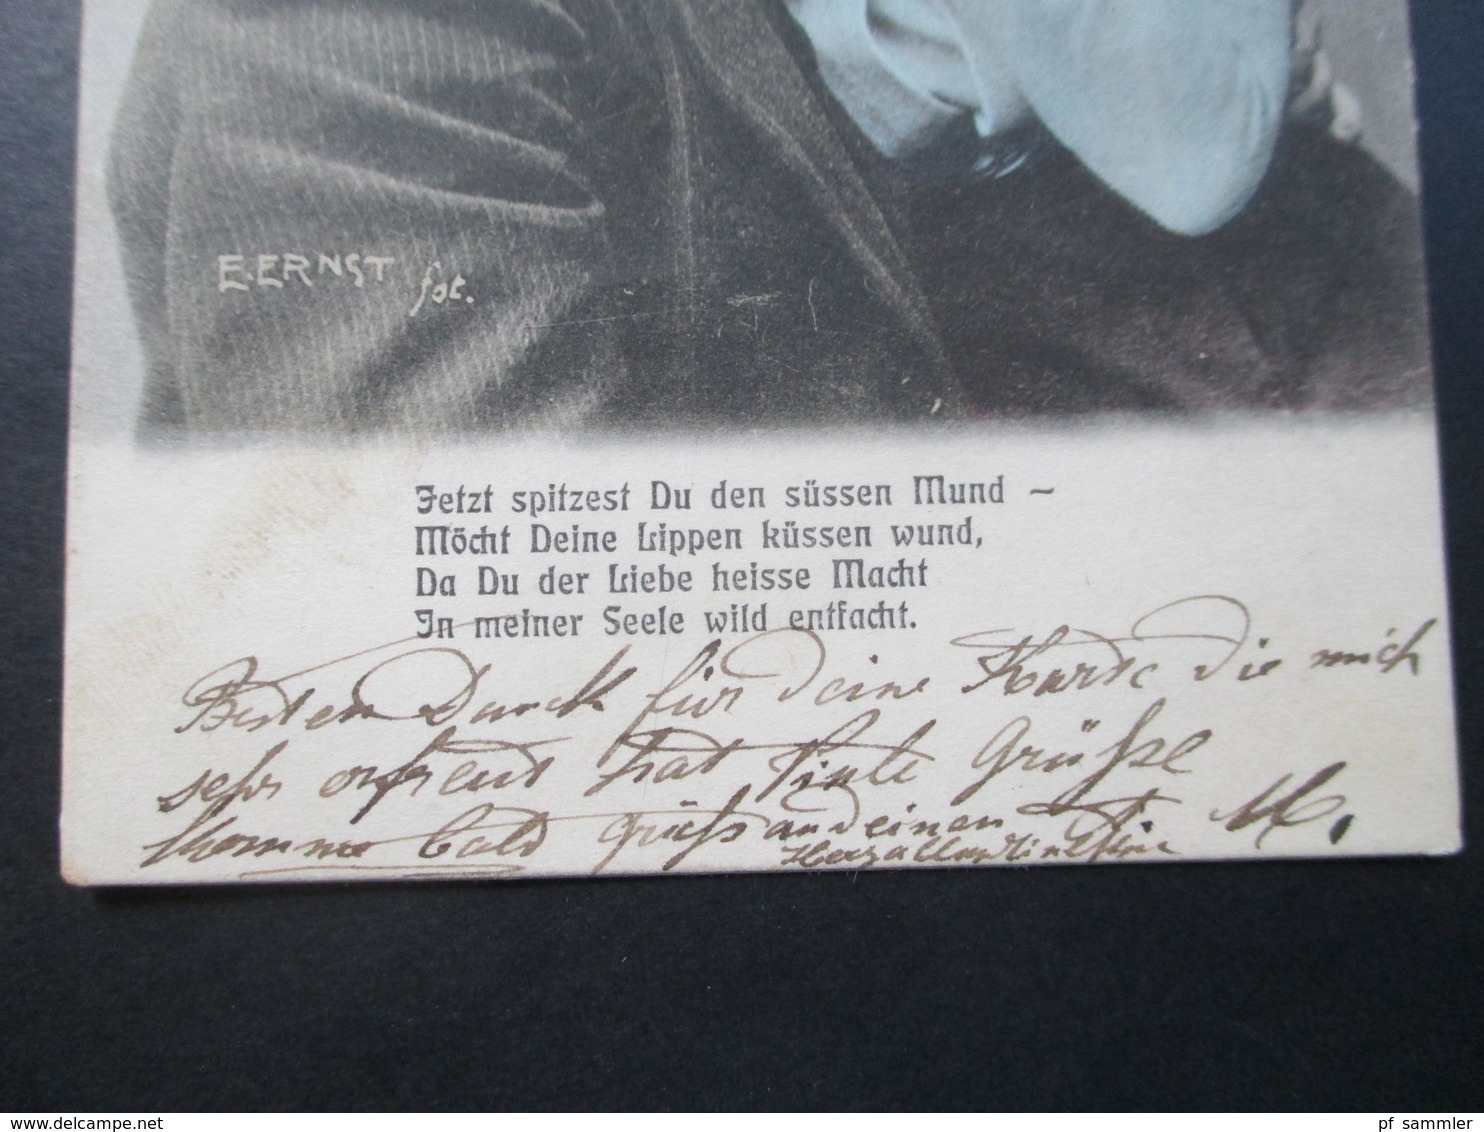 E. ERNST fot.
Jetzt spitzest Du den süssen Mund –
Möcht Deine Lippen küssen wund,
Da Du der Liebe heisse Macht
In meiner Seele wild entfacht.
Besten Danck für deine Karte die mich
sehr erfreut hat Viele Grüße
komme bald Gruss an deinen M.
pf_sammler
www.delcampe.net